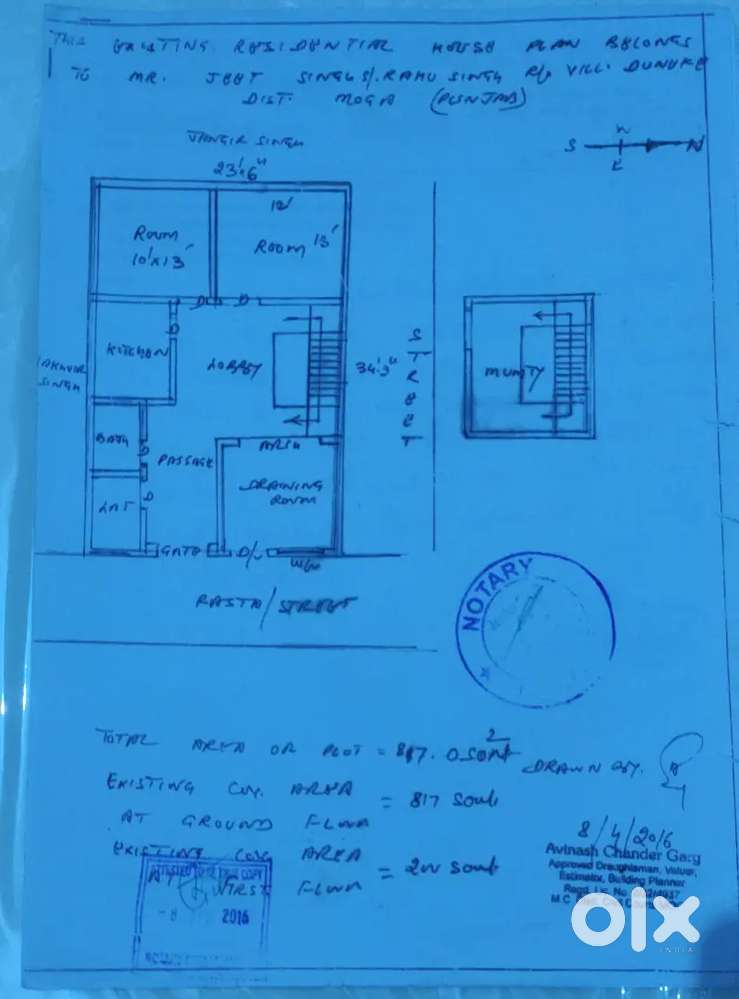 THIS EXISTING RESIDENTIAL HOUSE PLAN BELONGS
TO MR. JEET SINGH S/. RAHU SINGH R/o VILL. DUNUKE
DIST. MOGA (PUNJAB)
JANGIR SINGH
23'.6"
S W E N
ROOM
10'x13'
12'
ROOM 13'
KITCHON
LOBBY
SINGH
34'.3"
STREET
MUMTY
BATH
PASSAGE
ARCH
DRAINING
ROOM
LAT
GATE D/W W/W
RASTA/STREET
NOTARY
TOTAL AREA OR PLOT = 817.0 
EXISTING COV. AREA
AT GROUND FLOOR = 817
EXISTING COV. AREA
AT FIRST FLOOR =
DRAWN BY.
8/4/2016
Avinash Chander Garg
Approved Draughtsman, Valuer,
Estimator, Building Planner
Regd. Lic. No.
M.C.
ATTESTED TO BE TRUE COPY
-8 2016
olx
INDIA